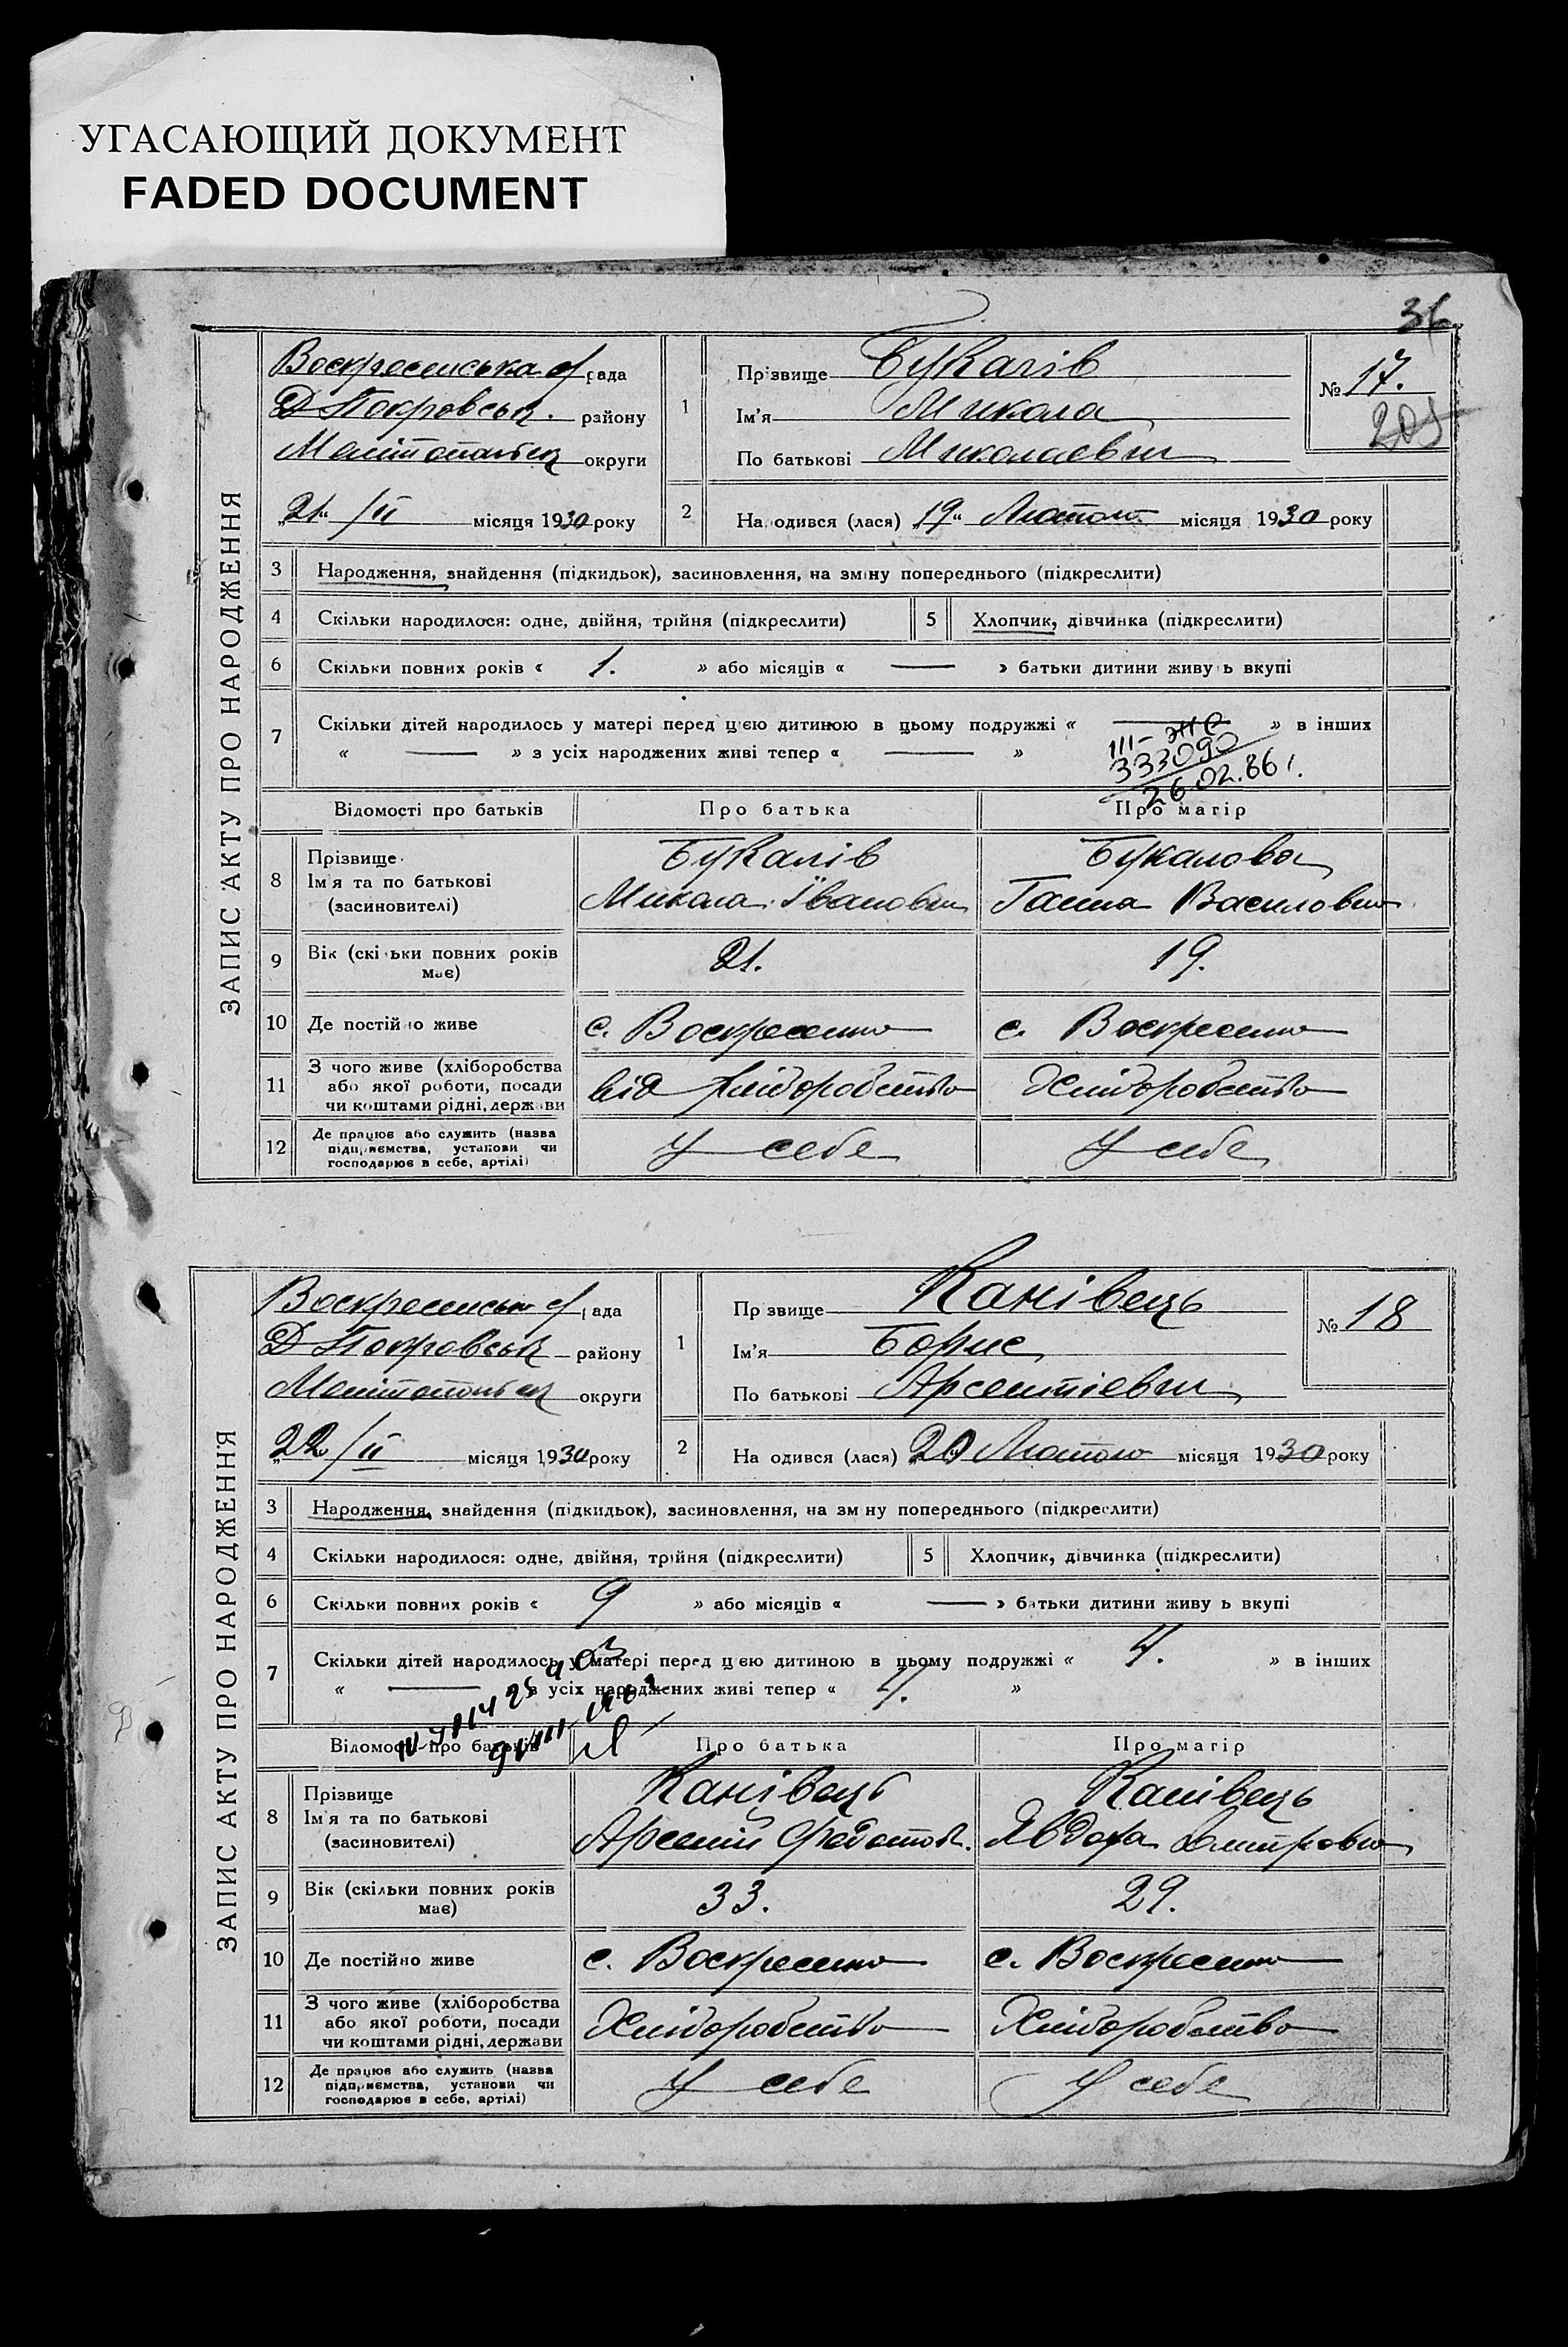 УГАСАЮЩИЙ ДОКУМЕНТ
FADED DOCUMENT
36
ЗАПИС АКТУ ПРО НАРОДЖЕННЯ
Воскресенська с/рада
Д Покровськ. району
Мелітопольськ округи
„21“ /II місяця 1930 року
1
Прізвище Букалів
Ім'я Микола
По батькові Миколаевич
№ 17.
205
2 Народився (лася) „19“ Лютого місяця 1930 року
3 Народження, знайдення (підкидьок), засиновлення, на зміну попереднього (підкреслити)
4 Скільки народилося: одне, двійня, трійня (підкреслити) 5 Хлопчик, дівчинка (підкреслити)
6 Скільки повних років « 1. » або місяців « — » батьки дитини живуть вкупі
7 Скільки дітей народилось у матері перед цією дитиною в цьому подружжі « — » в інших
« — » з усіх народжених живі тепер « — »
III-ЖС
333090
26.02.86 г.
Відомості про батьків Про батька Про матір
8 Прізвище
Ім'я та по батькові
(засиновителі)
Букалів
Микола Іванович
Букалова
Ганна Василовна
9 Вік (скільки повних років має) 21. 19.
10 Де постійно живе с. Воскресенка с. Воскресенка
11 З чого живе (хліборобства
або якої роботи, посади
чи коштами рідні, держави
від Хліборобства Хліборобства
12 Де працює або служить (назва
підприємства, установи чи
господарює в себе, артілі)
У себе У себе
ЗАПИС АКТУ ПРО НАРОДЖЕННЯ
Воскресенськ с/рада
Д Покровськ району
Мелітопольськ округи
„22“ /II місяця 1930 року
1
Прізвище Канівець
Ім'я Борис
По батькові Арсентіевич
№ 18
2 Народився (лася) „20“ Лютого місяця 1930 року
3 Народження, знайдення (підкидьок), засиновлення, на зміну попереднього (підкреслити)
4 Скільки народилося: одне, двійня, трійня (підкреслити) 5 Хлопчик, дівчинка (підкреслити)
6 Скільки повних років « 9 » або місяців « — » батьки дитини живуть вкупі
7 Скільки дітей народилось у матері перед цією дитиною в цьому подружжі « 4. » в інших
« — » з усіх народжених живі тепер « 4. »
Відомості про батьків Про батька Про матір
8 Прізвище
Ім'я та по батькові
(засиновителі)
Канівець
Арсеній Федотов.
Канівець
Явдоха Дмитровна
9 Вік (скільки повних років має) 33. 29.
10 Де постійно живе с. Воскресенка с. Воскресенка
11 З чого живе (хліборобства
або якої роботи, посади
чи коштами рідні, держави
Хліборобства Хліборобства
12 Де працює або служить (назва
підприємства, установи чи
господарює в себе, артілі)
У себе У себе